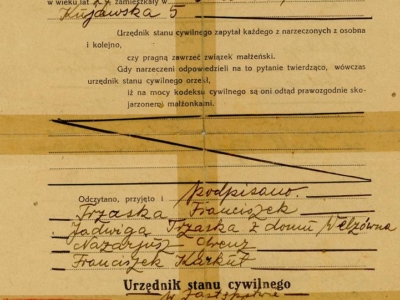 w wieku lat 27 zamieszkały w
Kujawska 5
Urzędnik stanu cywilnego zapytał każdego z narzeczonych z osobna
i kolejno,
czy pragną zawrzeć związek małżeński.
Gdy narzeczeni odpowiedzieli na to pytanie twierdząco, wówczas
urzędnik stanu cywilnego orzekł,
iż na mocy kodeksu cywilnego są oni odtąd prawozgodnie sko-
jarzonemi małżonkami.
Odczytano, przyjęto i podpisano.
Trzaska Franciszek
Jadwiga Trzaska z domu Welzówna
Nazarjusz
Franciszek Karkut
Urzędnik stanu cywilnego
w zastępstwie